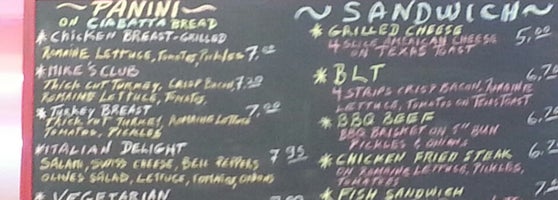 ~PANINI~
ON CIABATTA BREAD
* CHICKEN BREAST-GRILLED
ROMAINE LETTUCE, TOMATOES, PICKLES 7.
* MIKE'S CLUB
THICK CUT TURKEY, CRISP BACON, 7.
ROMAINE LETTUCE, TOMATOES,
* TURKEY BREAST 7.
THICK CUT TURKEY, ROMAINE LETTUCE
TOMATOES, PICKLES
* ITALIAN DELIGHT
SALAMI, SWISS CHEESE, BELL PEPPERS 7.95
OLIVES SALAD, LETTUCE, TOMATO, ONIONS
* VEGETARIAN
~ SANDWICH ~
* GRILLED CHEESE 5.00
4 SLICE AMERICAN CHEESE
ON TEXAS TOAST
* BLT 6.
4 STRIPS CRISP BACON, ROMAINE
LETTUCE, TOMATOES ON TEXAS TOAST
* BBQ BEEF 6.
BBQ BRISKET ON 5" BUN
PICKLES & ONIONS
* CHICKEN FRIED STEAK 6.
ON ROMAINE LETTUCE, PICKLES,
TOMATOES
* FISH SANDWICH 7